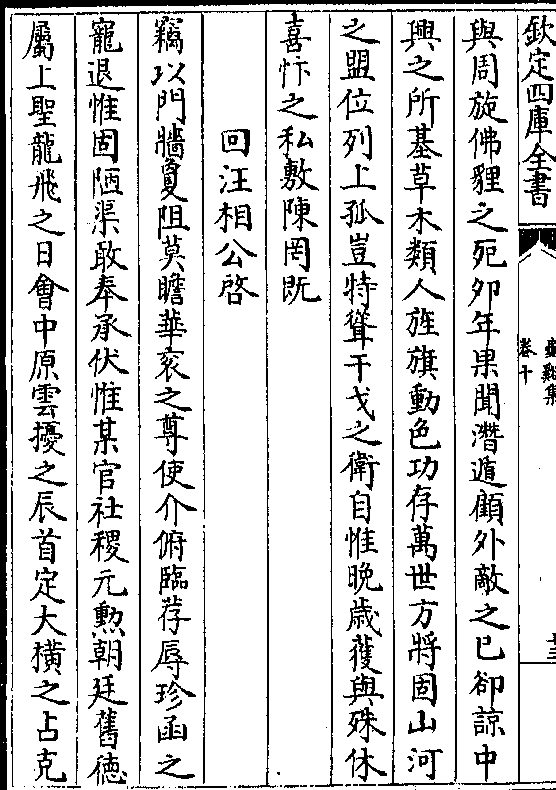 欽定四庫全書
卷十
與周旋佛貍之死卯年果聞潛遁顧外敵之已卻諒中
興之所基草木類人旌旗動色功存萬世方將固山河
之盟位列上孤豈特聳干戈之衛自惟晚歲獲與殊休
喜忭之私敷陳罔既
回汪相公啓
竊以門牆敻阻莫瞻華衮之尊使介俯臨荐辱珍函之
寵退惟固陋渠敢奉承伏惟某官社稷元勲朝廷舊徳
屬上聖龍飛之日會中原雲擾之辰首定大橫之占克